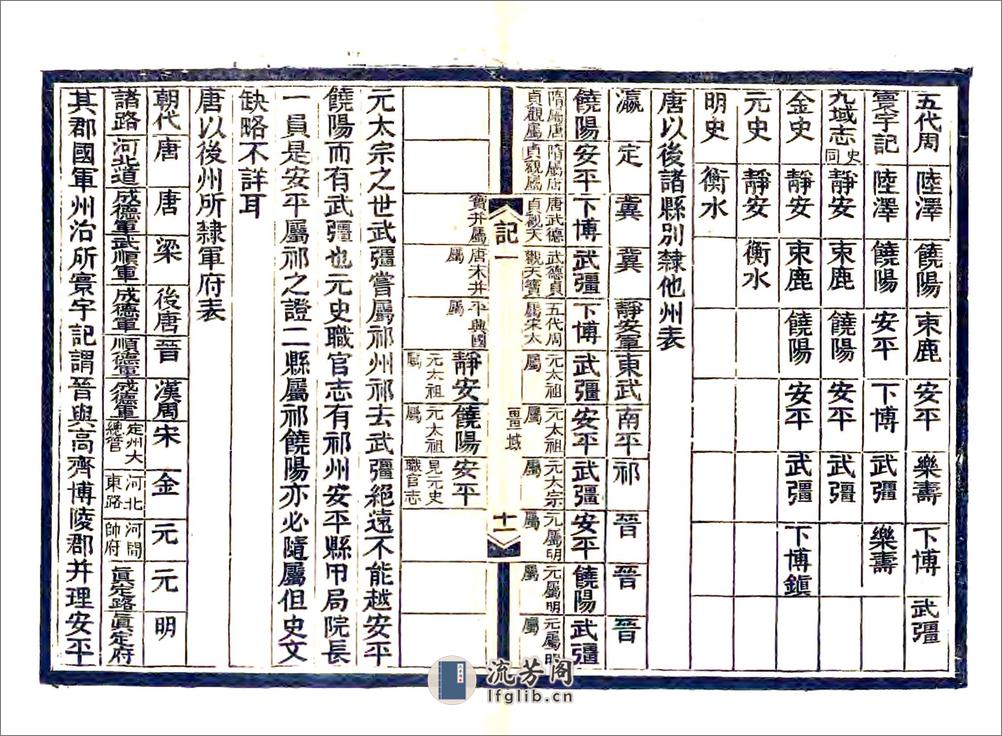 五代周 陸澤 饒陽 束鹿 安平 樂壽 下博 武彊
寰宇記 陸澤 饒陽 安平 下博 武彊 樂壽
九域志史同 靜安 束鹿 饒陽 安平 武彊
金史 靜安 束鹿 饒陽 安平 武彊 下博鎮
元史 靜安 衡水
明史 衡水
唐以後諸縣別隸他州表
瀛 定 冀 冀 靜安軍 東武 南平 祁 晉 晉 晉
饒陽 安平 下博 武彊 下博 武彊 安平 武彊 安平 饒陽 武彊
隋屬唐貞觀屬 隋屬唐貞觀屬 唐武德貞觀天 武德貞觀天寶 五代周屬宋太 元太祖屬 元太祖屬 元太宗屬 元屬明屬 元屬明屬 元屬明屬
記一 畺域 十一
寶井屬 唐末井屬 平興國屬 靜安 饒陽 安平
元太祖屬 元太祖屬 見元史職官志
元太宗之世武彊嘗屬祁州祁去武彊絕遠不能越安平
饒陽而有武彊也元史職官志有祁州安平縣甲局院長
一員是安平屬祁之證二縣屬祁饒陽亦必隨屬但史文
缺略不詳耳
唐以後州所隸軍府表
朝代 唐 唐 梁 後唐 晉 漢周 宋 金 元 元 明
諸路 河北道 成德軍 武順軍 成德軍 順德軍 成德軍 定州大總管 河北東路 河間帥府 眞定路 眞定府
其郡國軍州治所寰宇記謂晉與高齊博陵郡并理安平
流芳阁
lfglib.cn